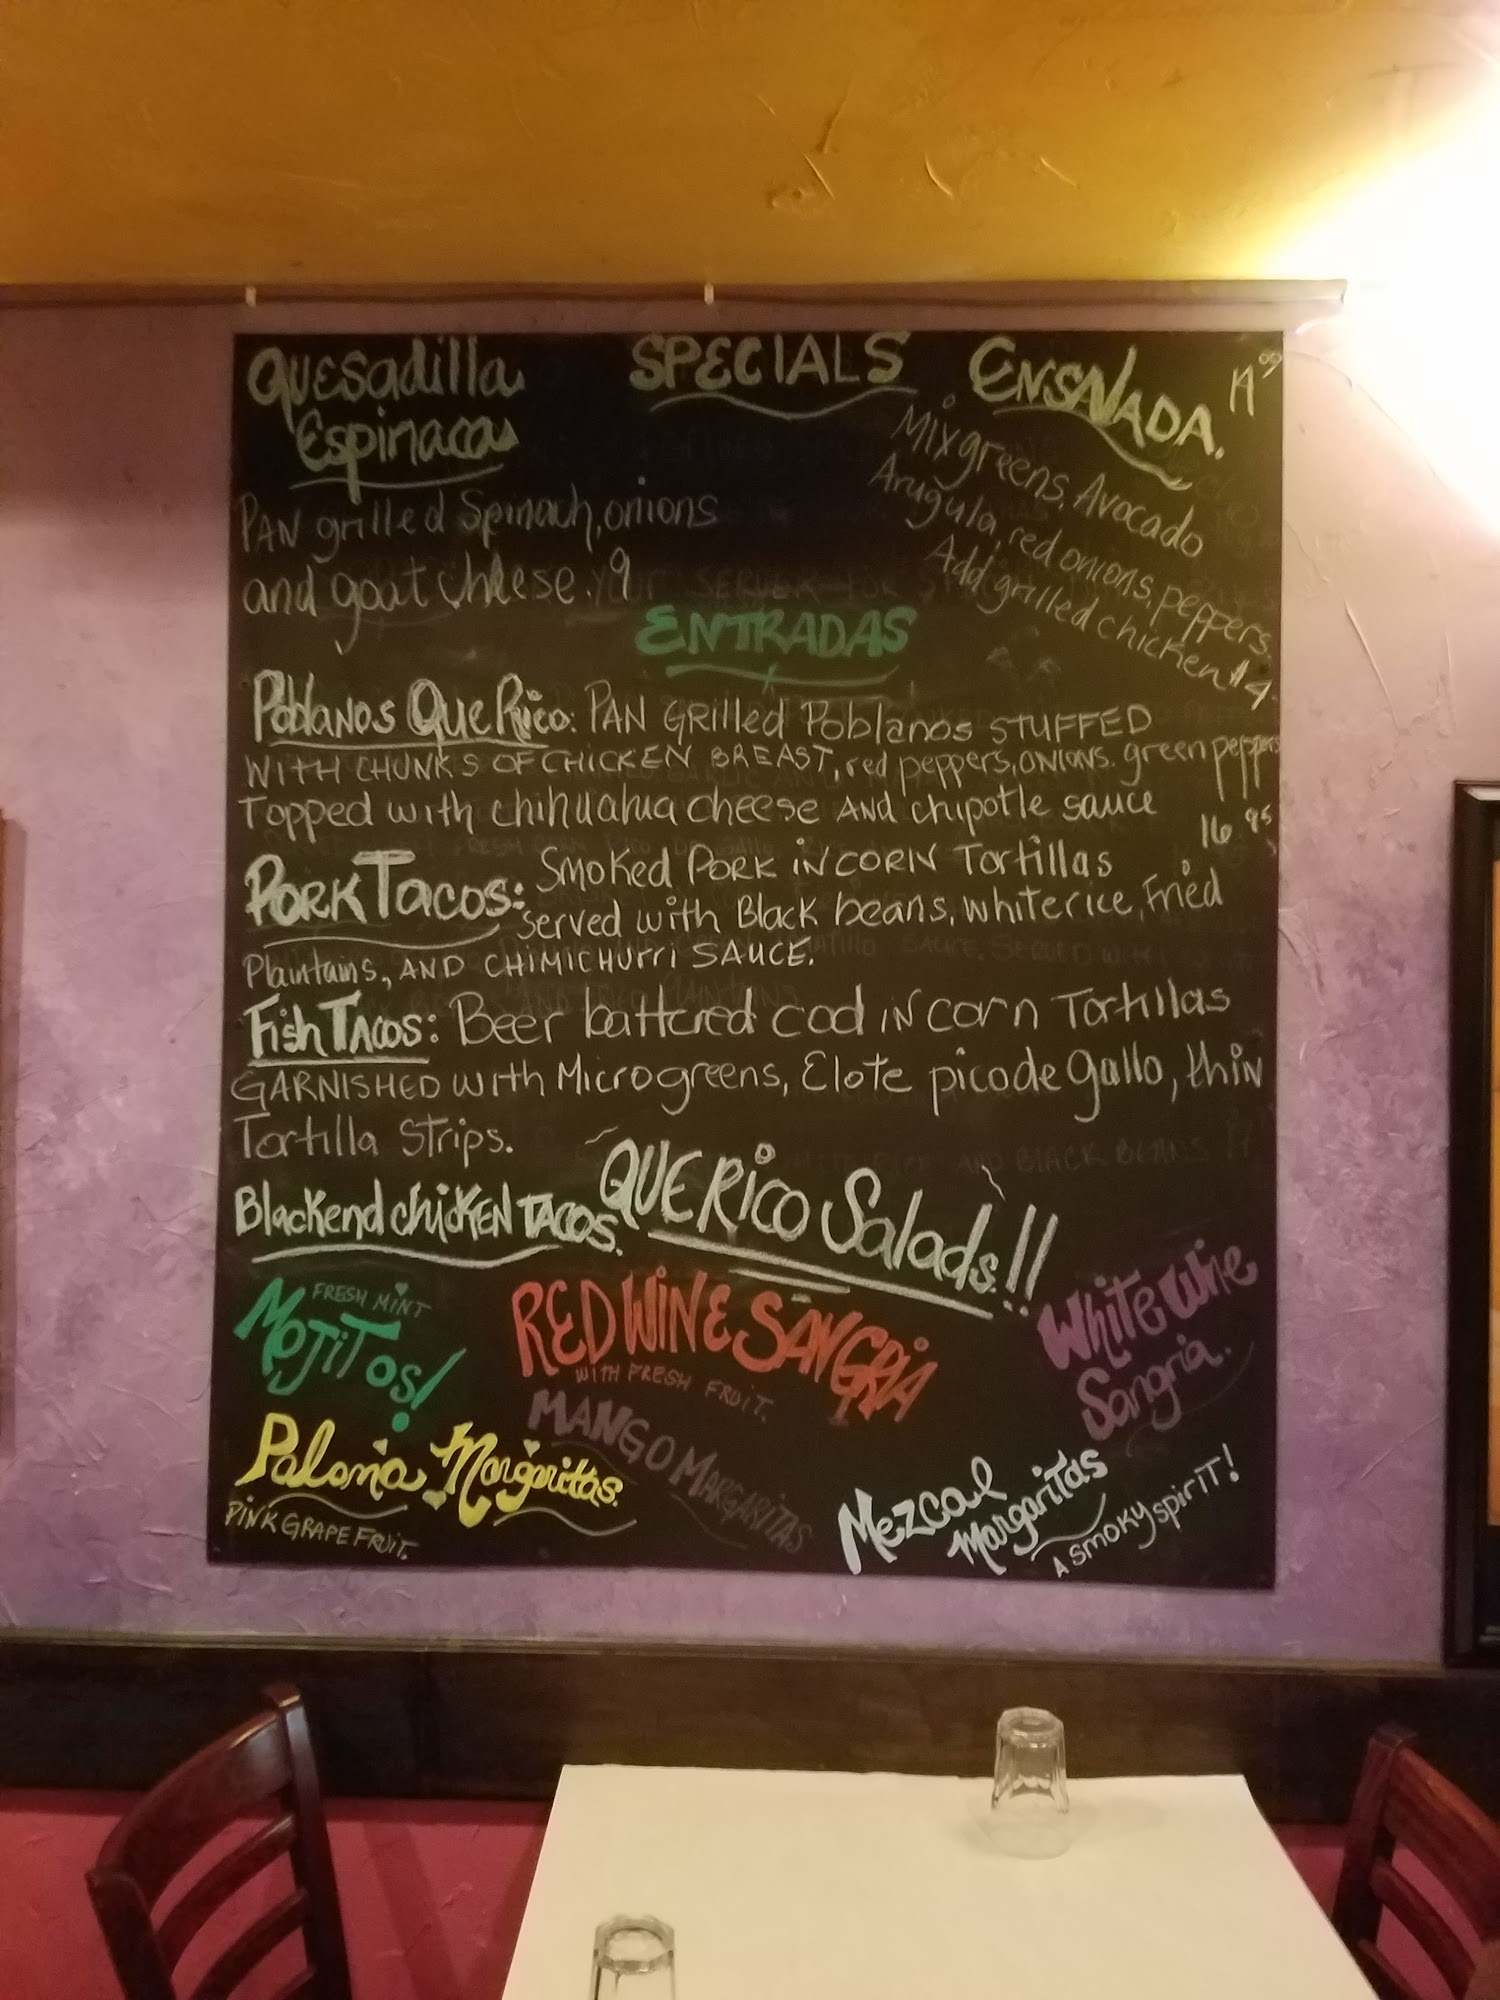 SPECIALS
Quesadilla
Espinacas
PAN grilled Spinach, onions
and goat cheese. 9
ENSALADA.
Mix greens, Avocado
Arugula, red onions, peppers,
Add grilled chicken $4.
ENTRADAS
Poblanos Que Rico: PAN GRilled Poblanos STUFFED
WITH CHUNKS OF CHICKEN BREAST, red peppers, ONIONS. green peppers
Topped with chihuahua cheese AND chipotle sauce
16.95
PORK TACOS: Smoked PORK IN CORN Tortillas
Served with Black beans, white rice, Fried
Plaintains, AND CHIMICHUrri SAUCE.
Fish TAcos: Beer battered cod IN corn Tortillas
GARNISHED with Microgreens, Elote pico de gallo, thin
Tortilla Strips.
Blackend chicKEN TACOS.
QUE Rico Salads!!
FRESH MINT
MOJITOS!
RED WINE SANGRIA
WITH FRESH FRUIT.
White Wine
Sangria.
Paloma Margaritas.
PINK GRAPEFRUIT.
MANGO MARGARITAS
Mezcal
Margaritas
A SMOKY SPIRIT!